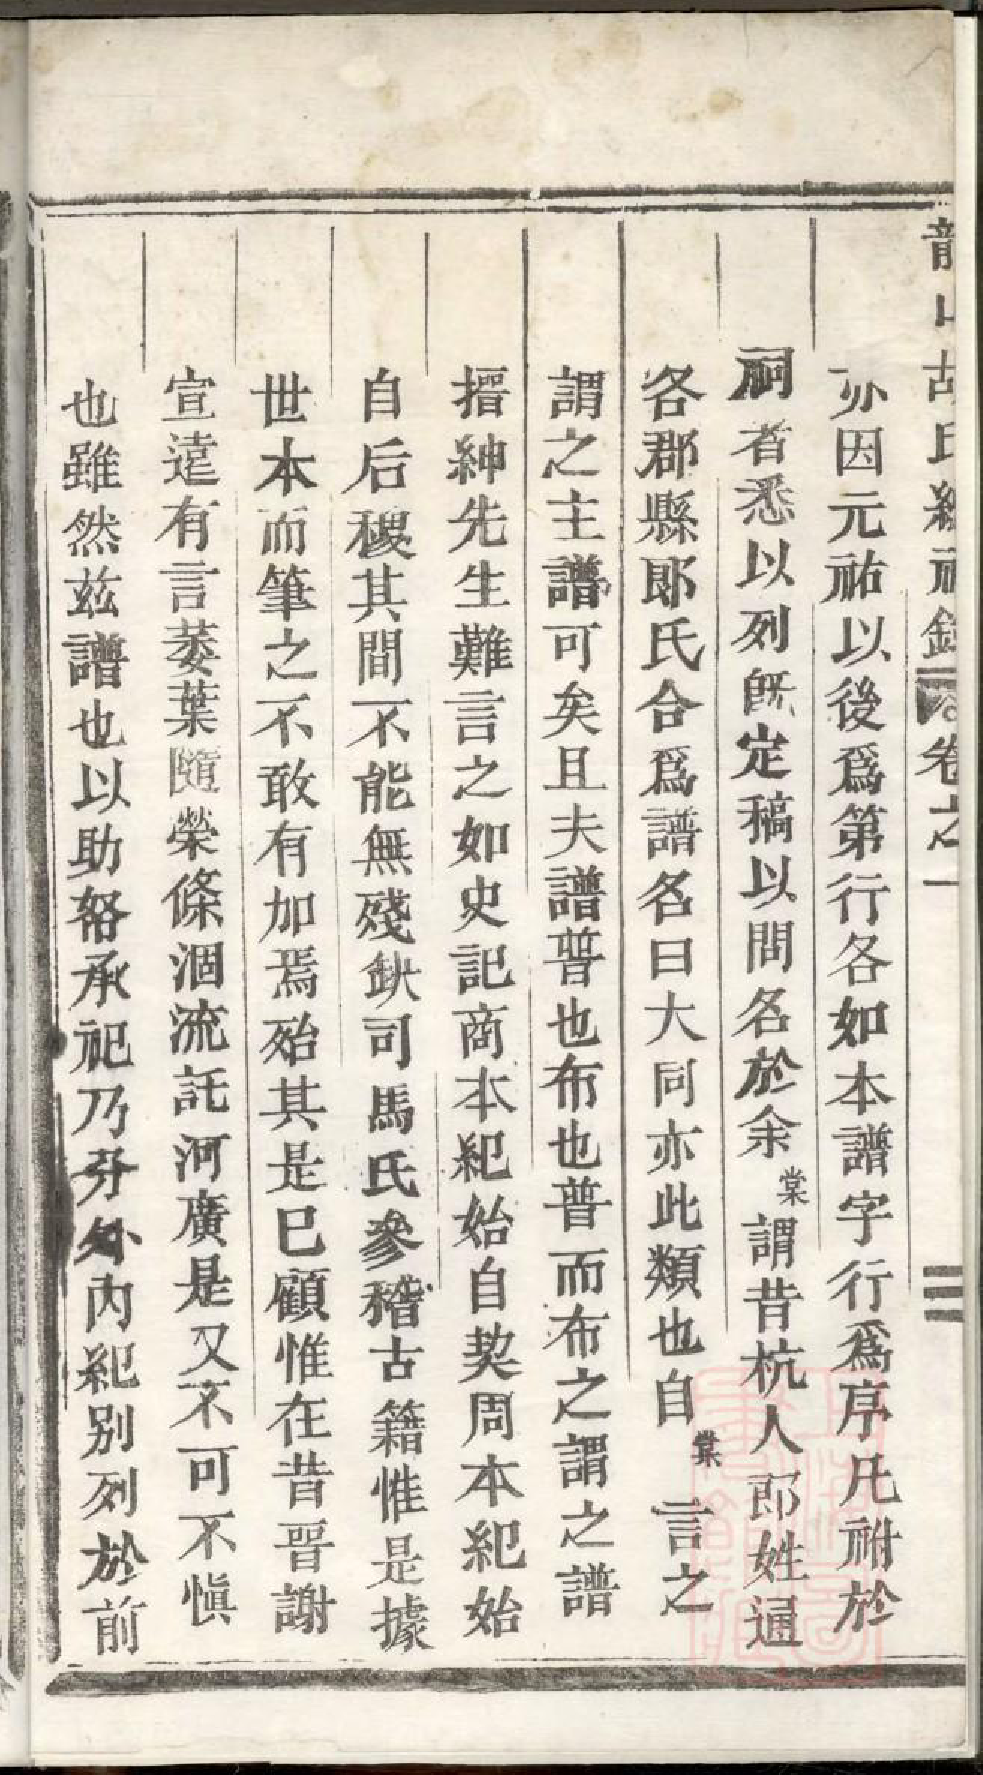 龍山胡氏綿祠錄 卷之一 三
亦因元祐以後爲第行各如本譜字行爲序凡祔於
祠者悉以列旣定稿以問名於余棠謂昔杭人郎姓通
各郡縣郎氏合爲譜名曰大同亦此類也自棠言之
謂之主譜可矣且夫譜普也布也普而布之謂之譜
搢紳先生難言之如史記商本紀始自契周本紀始
自后稷其間不能無殘缺司馬氏參稽古籍惟是據
世本而筆之不敢有加焉殆其是已顧惟在昔晉謝
宣遠有言萎葉隨榮條涸流託河廣是又不可不愼
也雖然茲譜也以助畧承祀乃分外內紀别列於前